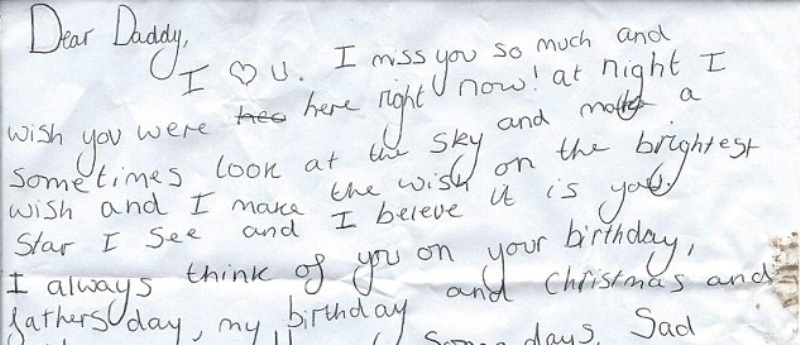 Dear Daddy,
I ♡ U. I miss you so much and
wish you were hee here right now! at night I
sometimes look at the sky and make a
wish and I make the wish on the brightest
star I see and I beleve it is you.
I always think of you on your birthday,
fathers day, my birthday and christmas and
days. Sad